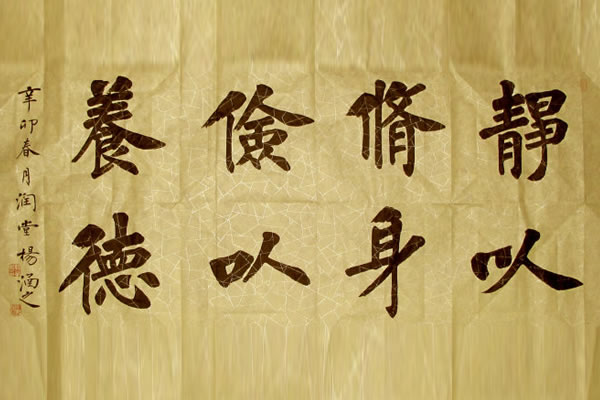 靜以
脩身
儉以
養德
辛卯春月润堂楊涵之